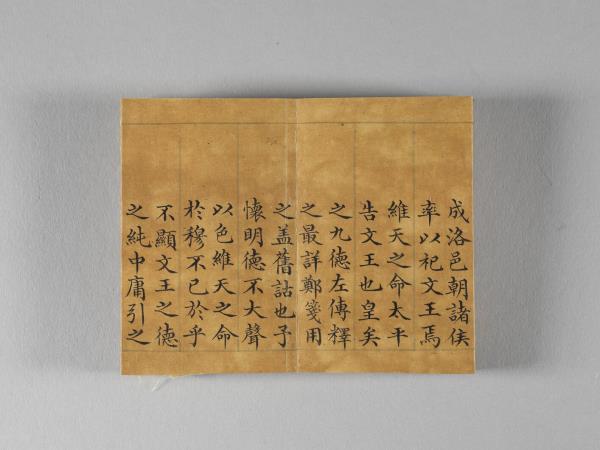 成洛邑朝諸侯
率以祀文王焉
維天之命太平
告文王也皇矣
之九德左傳釋
之最詳鄭箋用
之盖舊詁也予
懷明德不大聲
以色維天之命
於穆不已於乎
不顯文王之德
之純中庸引之